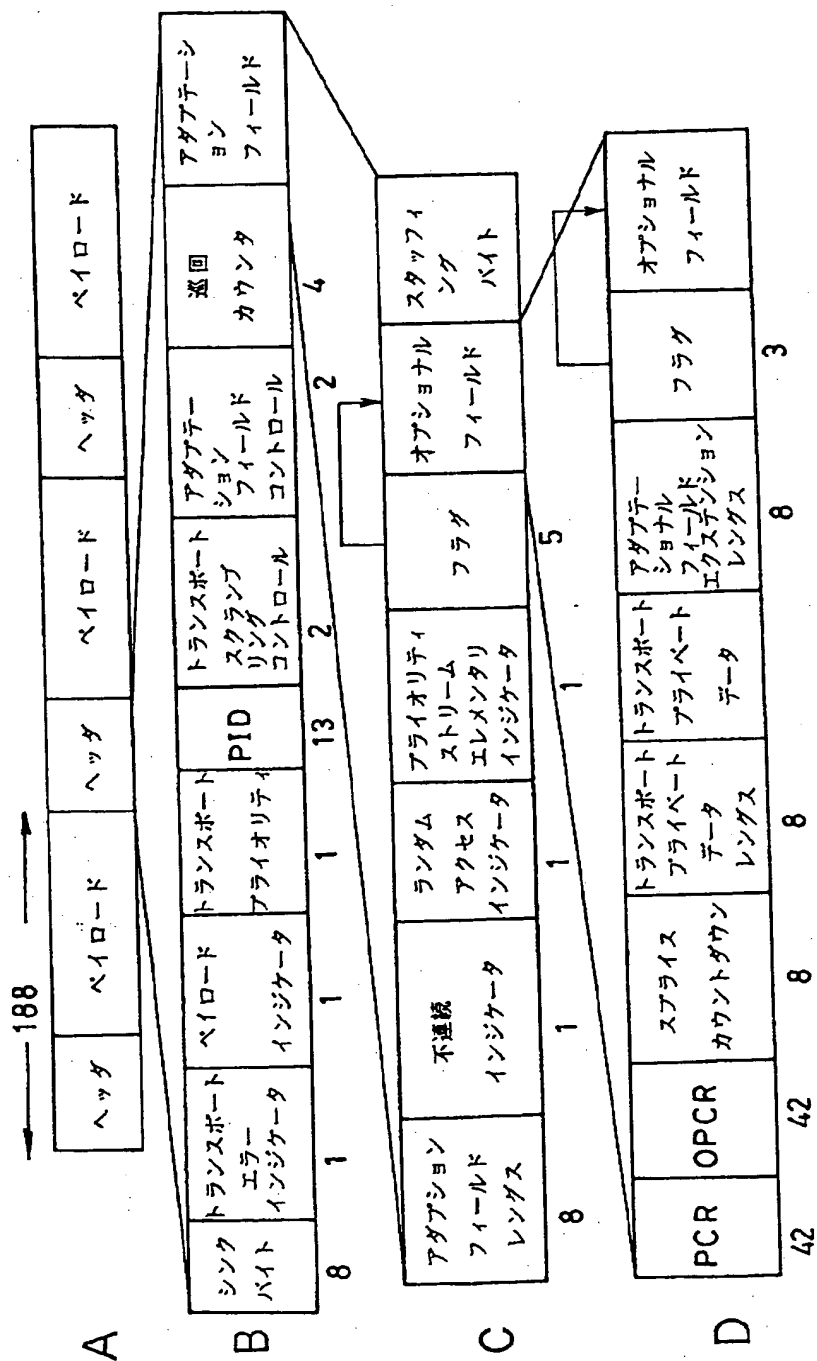 188
A
ヘッダ
ペイロード
ヘッダ
ペイロード
ヘッダ
ペイロード
B
シンク
バイト
8
トランスポート
エラー
インジケータ
1
ペイロード
インジケータ
1
トランスポート
プライオリティ
1
PID
13
トランスポート
スクランブ
リング
コントロール
2
アダプテー
ション
フィールド
コントロール
2
巡回
カウンタ
4
アダプテーシ
ョン
フィールド
C
アダプション
フィールド
レングス
8
不連続
インジケータ
1
ランダム
アクセス
インジケータ
1
プライオリティ
ストリーム
エレメンタリ
インジケータ
1
フラグ
5
オプショナル
フィールド
スタッフィ
ング
バイト
D
PCR
42
OPCR
42
スプライス
カウントダウン
8
トランスポート
プライベート
データ
レングス
8
トランスポート
プライベート
データ
アダプテー
ショナル
フィールド
エクステンション
レングス
8
フラグ
3
オプショナル
フィールド